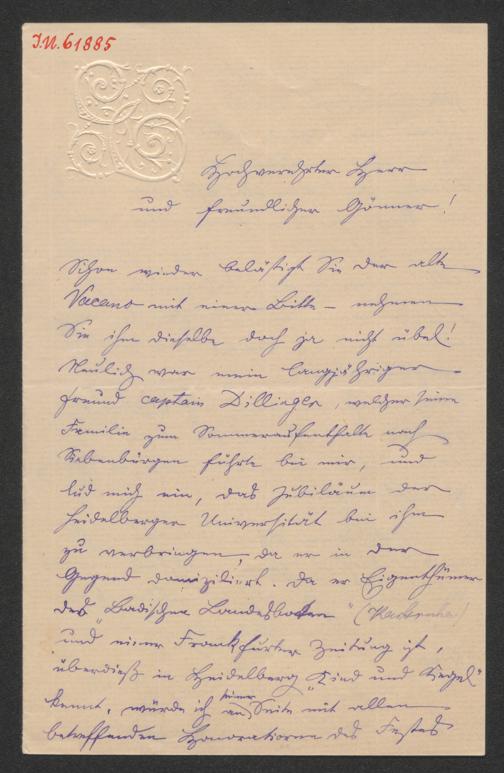 I.N. 61885
Hochverehrter Herr
und freundlicher Gönner!
Schon wieder belästigt Sie der alte
Vacano mit einer Bitte – nehmen
Sie ihm dieselbe doch ja nicht übel!
Neulich war mein langjähriger
Freund captain Dillinger, welcher seine
Familie zum Sommeraufenthalte nach
Siebenbürgen führte bei mir, und
lud mich ein, das Jubiläum der
Heidelberger Universität bei ihm
zu verbringen, da er in der
Gegend domizilirt. Da er Eigenthümer
des "Badischen Landesboten" (Karlsruhe)
und einer Frankfurter Zeitung ist,
überdieß in Heidelberg "Kind und Kegel"
kennt, würde ich an seiner Seite mit allen
betreffenden Honoratioren des Festes